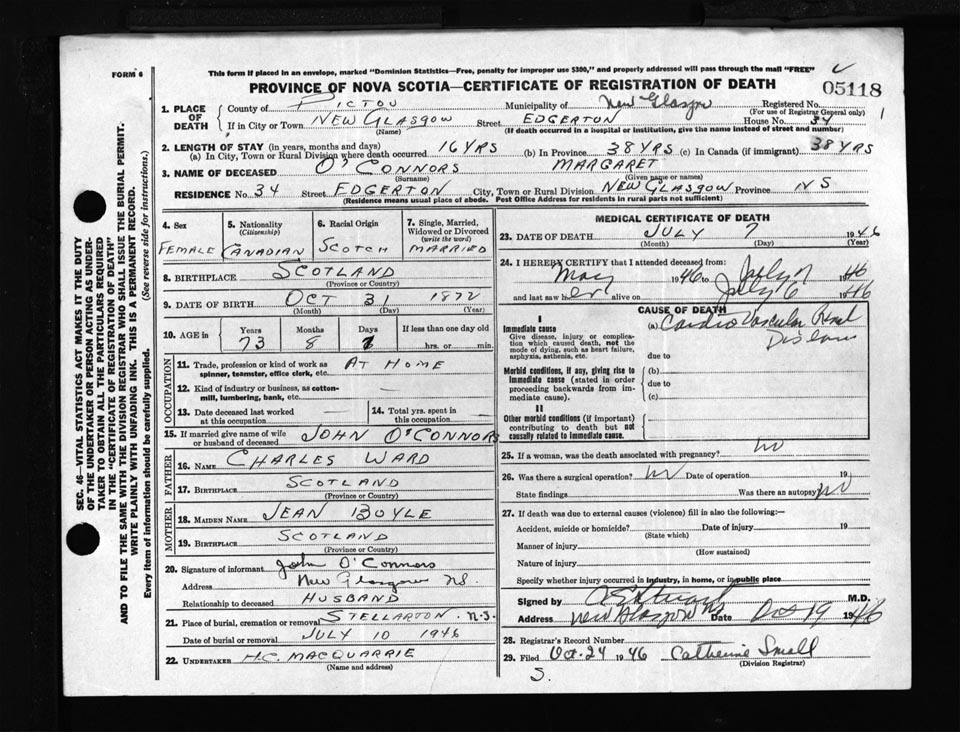 FORM 6
This form if placed in an envelope, marked "Dominion Statistics—Free, penalty for improper use $300," and properly addressed will pass through the mail "FREE"
PROVINCE OF NOVA SCOTIA—CERTIFICATE OF REGISTRATION OF DEATH
05118
1. PLACE OF DEATH
County of PICTOU Municipality of New Glasgow Registered No.
(For use of Registrar General only)
If in City or Town NEW GLASGOW Street EDGERTON House No. 34
(Name) (If death occurred in a hospital or institution, give the name instead of street and number)
2. LENGTH OF STAY (in years, months and days)
(a) In City, Town or Rural Division where death occurred 16 YRS (b) In Province 38 YRS (c) In Canada (if immigrant) 38 YRS
3. NAME OF DECEASED O'CONNORS MARGARET
(Surname) (Given name or names)
RESIDENCE NO. 34 Street EDGERTON City, Town or Rural Division NEW GLASGOW Province NS
(Residence means usual place of abode. Post Office Address for residents in rural parts not sufficient)
4. Sex 5. Nationality (Citizenship) 6. Racial Origin 7. Single, Married, Widowed or Divorced (write the word)
FEMALE CANADIAN SCOTCH MARRIED
8. BIRTHPLACE SCOTLAND
(Province or Country)
9. DATE OF BIRTH OCT 31 1872
(Month) (Day) (Year)
10. AGE in Years Months Days If less than one day old
73 8 7 hrs. or min.
OCCUPATION
11. Trade, profession or kind of work as spinner, teamster, office clerk, etc. AT HOME
12. Kind of industry or business, as cotton-mill, lumbering, bank, etc. —
13. Date deceased last worked at this occupation — 14. Total yrs. spent in this occupation —
15. If married give name of wife or husband of deceased JOHN O'CONNORS
FATHER
16. NAME CHARLES WARD
17. BIRTHPLACE SCOTLAND
(Province or Country)
MOTHER
18. MAIDEN NAME JEAN BOYLE
19. BIRTHPLACE SCOTLAND
(Province or Country)
20. Signature of informant John O'Connors
Address New Glasgow NS.
Relationship to deceased HUSBAND
21. Place of burial, cremation or removal STELLARTON. N.S.
Date of burial or removal JULY 10 1946
22. UNDERTAKER H.C. MACQUARRIE
(Name and address)
MEDICAL CERTIFICATE OF DEATH
23. DATE OF DEATH JULY 7 1946
(Month) (Day) (Year)
24. I HEREBY CERTIFY that I attended deceased from:
May 1946 to July 7 1946
and last saw her alive on July 6 1946
CAUSE OF DEATH
I
Immediate cause
Give disease, injury or complication which caused death, not the mode of dying, such as heart failure, asphyxia, asthenia, etc.
(a) Cardio Vascular Renal
Disease
due to
Morbid conditions, if any, giving rise to immediate cause (stated in order proceeding backwards from immediate cause).
(b)
due to
(c)
II
Other morbid conditions (if important) contributing to death but not causally related to immediate cause.
25. If a woman, was the death associated with pregnancy? no
26. Was there a surgical operation? no Date of operation 19
State findings Was there an autopsy no
27. If death was due to external causes (violence) fill in also the following:—
Accident, suicide or homicide? Date of injury 19
(State which)
Manner of injury
(How sustained)
Nature of injury
Specify whether injury occurred in industry, in home, or in public place
Signed by M.D.
Address New Glasgow NS Date Oct 19 1946
28. Registrar's Record Number
29. Filed Oct. 24 1946 Catherine Small
(Division Registrar)
S.
SEC. 46—VITAL STATISTICS ACT MAKES IT THE DUTY
OF THE UNDERTAKER OR PERSON ACTING AS UNDER-
TAKER TO OBTAIN ALL THE PARTICULARS REQUIRED
IN THE "CERTIFICATE OF REGISTRATION OF DEATH"
AND TO FILE THE SAME WITH THE DIVISION REGISTRAR WHO SHALL ISSUE THE BURIAL PERMIT.
WRITE PLAINLY WITH UNFADING INK. THIS IS A PERMANENT RECORD.
Every item of information should be carefully supplied. (See reverse side for instructions.)